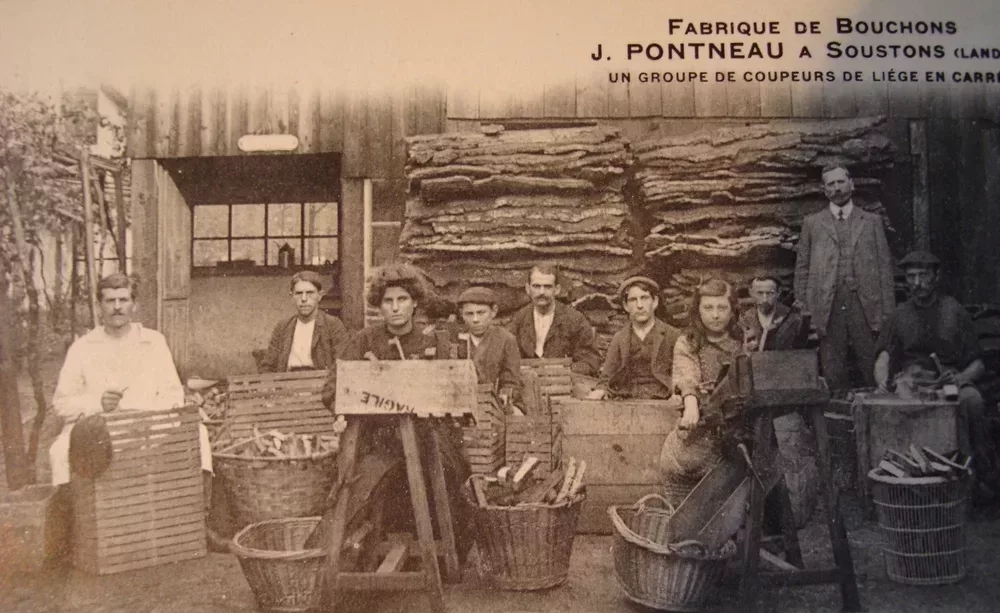 FABRIQUE DE BOUCHONS
J. PONTNEAU A SOUSTONS (LAND
UN GROUPE DE COUPEURS DE LIÉGE EN CARRÉ
FRAGILE